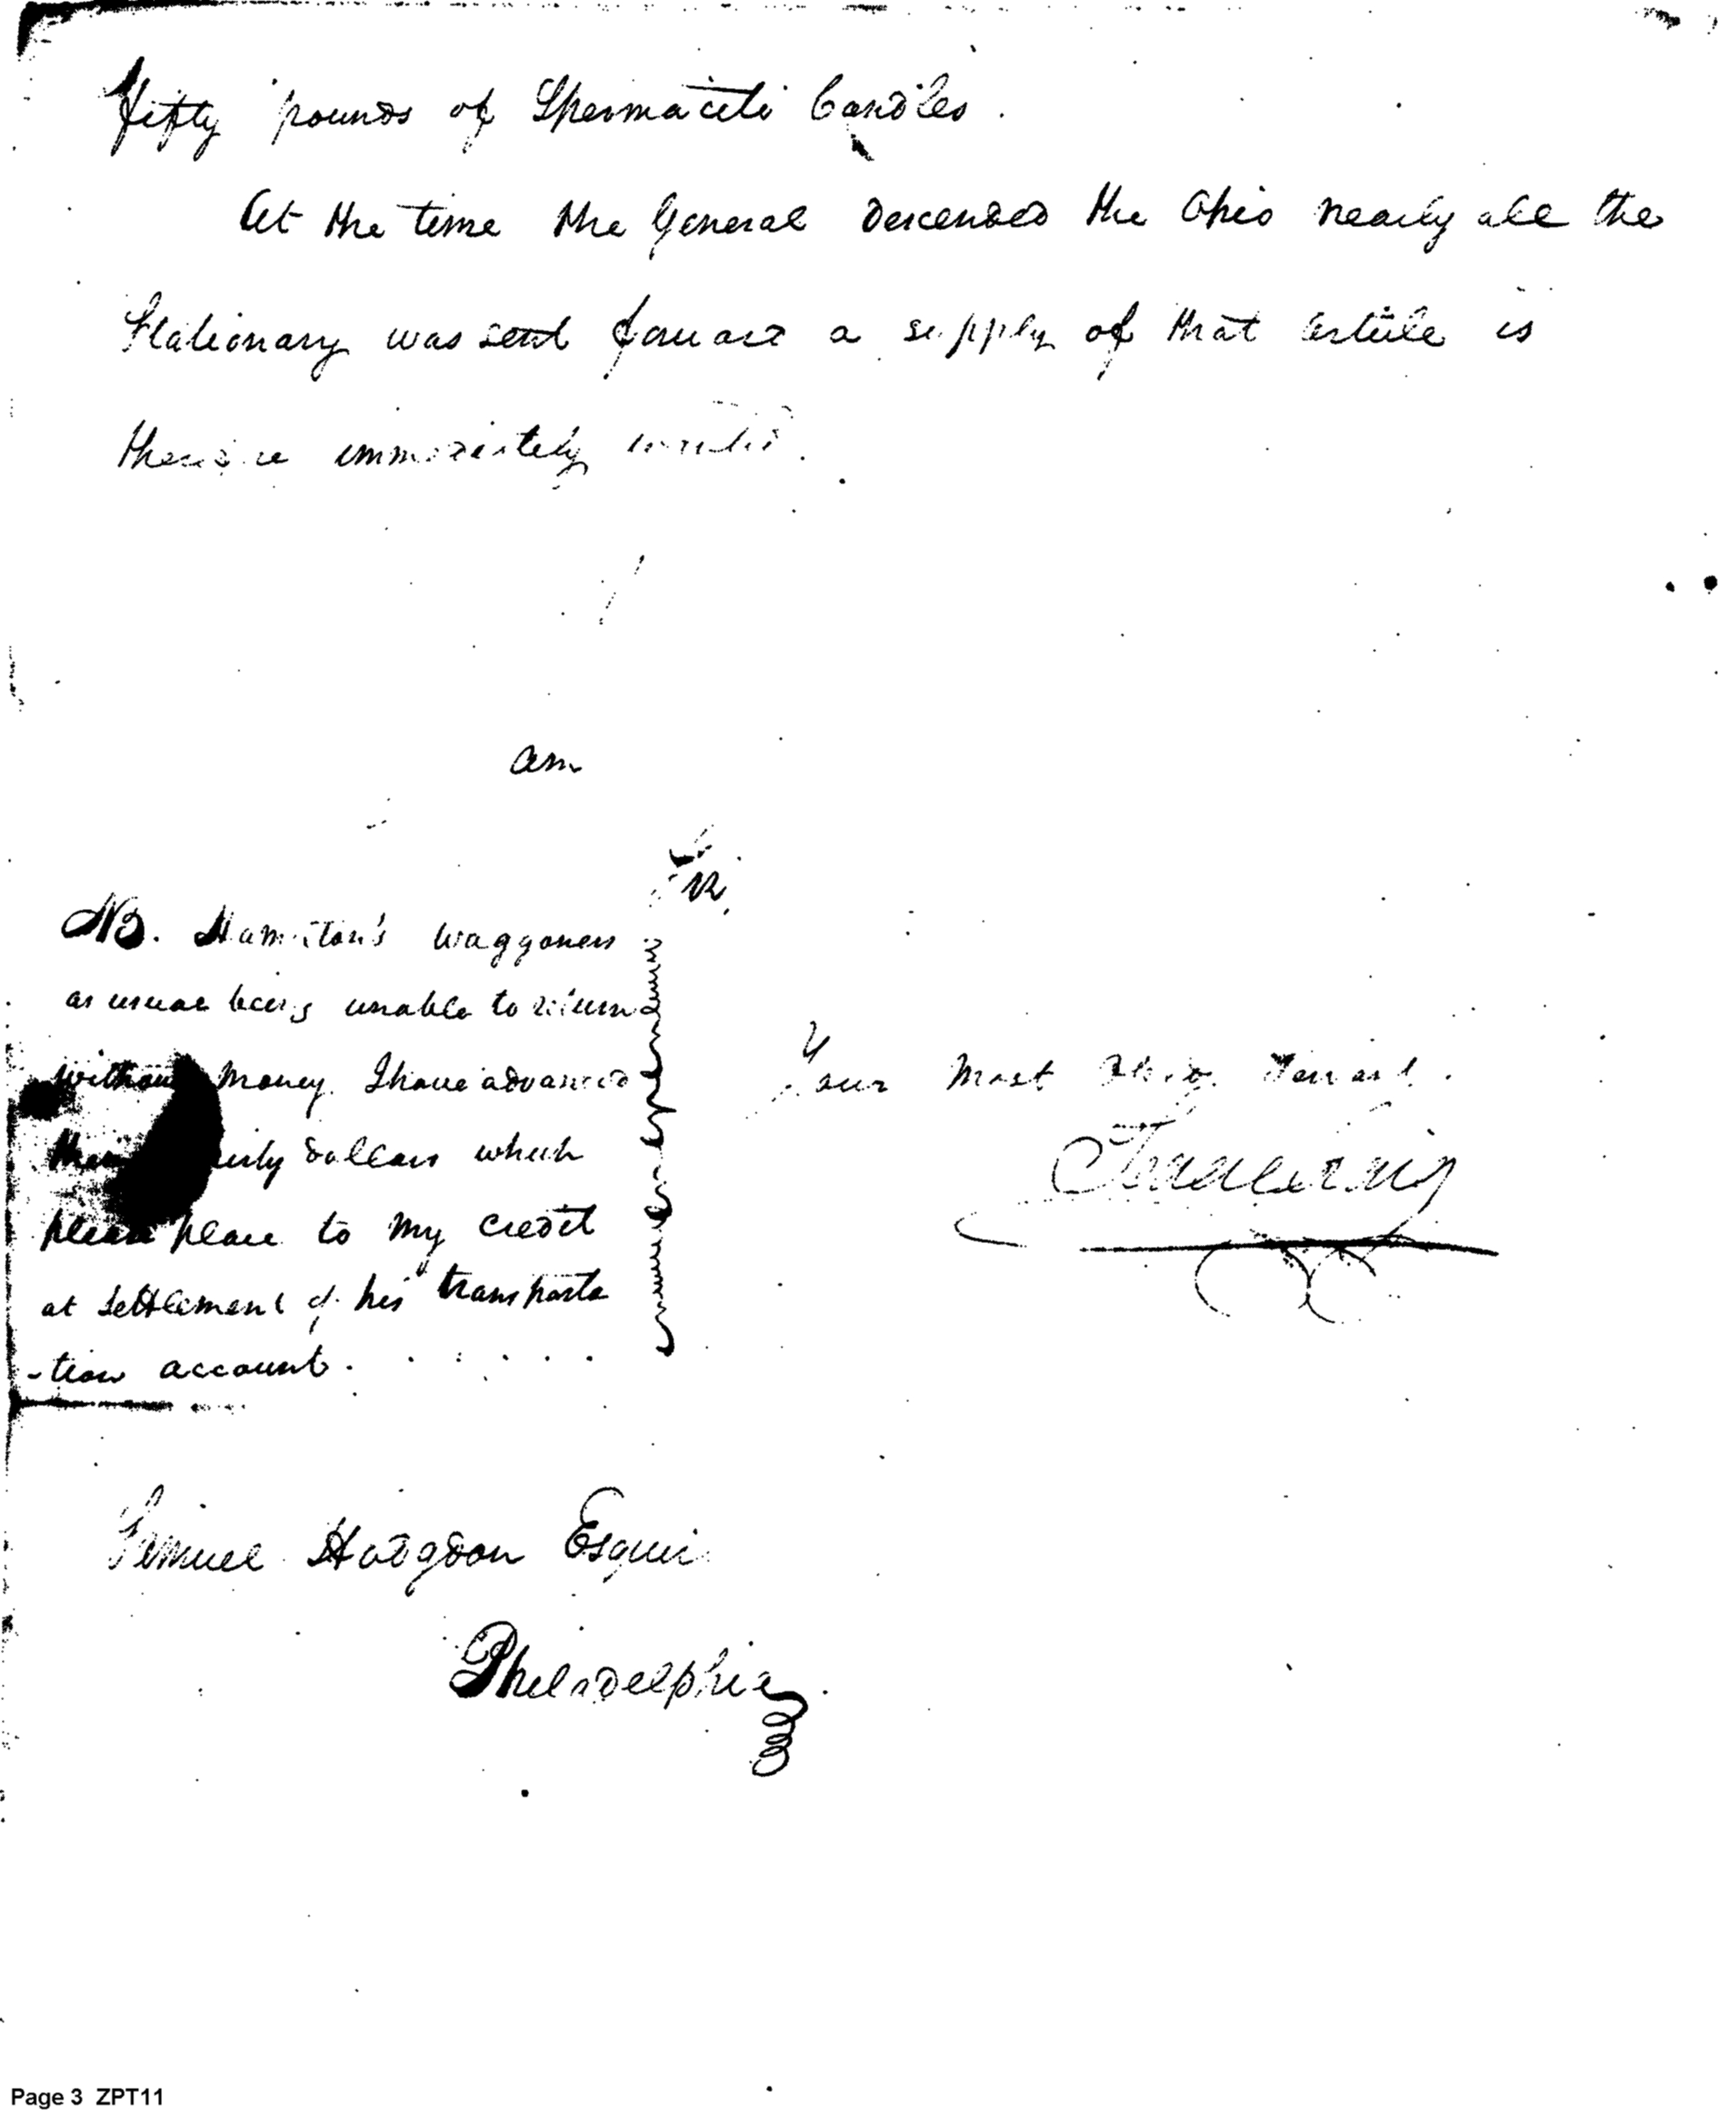 Fifty pounds of Spermaceti Candles.
At the time the General descended the Ohio nearly all the
Stationary was sent forward a supply of that article is
therefore immediately wanted.
am
Sir,
NB. Hamilton's Waggoners
as usual being unable to return
without money. I have advanced
them dollars which
please place to my credit
at settlement of his transporta
-tion account.
Your most Obed. Servant.
Samuel Hodgdon Esquire
Philadelphia.
Page 3 ZPT11